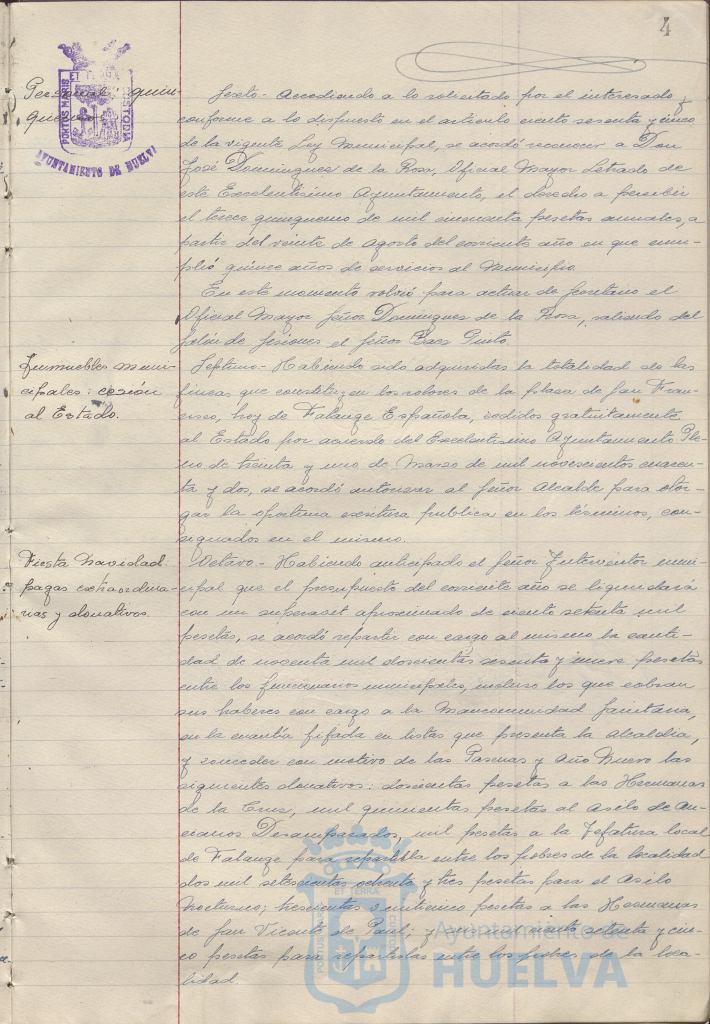 4
PORTUS MARIS ET TERRAE CUSTODIA
AYUNTAMIENTO DE HUELVA
Personal: quin-
quenio.
Sexto.- Accediendo a lo solicitado por el interesado y
conforme a lo dispuesto en el artículo ciento sesenta y cinco
de la vigente Ley Municipal, se acordó reconocer a Don
José Domínguez de la Rosa, Oficial Mayor Letrado de
este Excelentísimo Ayuntamiento, el derecho a percibir
el tercer quinquenio de mil cincuenta pesetas anuales, a
partir del veinte de Agosto del corriente año en que cum-
plió quince años de servicios al Municipio.
En este momento volvió para actuar de Secretario el
Oficial Mayor Señor Domínguez de la Rosa, saliendo del
Salón de Sesiones el Señor Pinto.
Inmuebles muni-
cipales: cesión
al Estado.
Septimo.- Habiendo sido adquiridas la totalidad de las
fincas que constituyen los solares de la plaza de San Fran-
cisco, hoy de Falange Española, cedidos gratuitamente
al Estado por acuerdo del Excelentísimo Ayuntamiento Ple-
no de treinta y uno de Marzo de mil novecientos cuaren-
ta y dos, se acordó autorizar al Señor Alcalde para otor-
gar la oportuna escritura publica en los términos, con-
signados en el mismo.
Fiesta Navidad.
pagas extraordina-
rias y donativos.
Octavo.- Habiendo anticipado el Señor Interventor muni-
cipal que el presupuesto del corriente año se liquidará
con un superavit aproximado de ciento setenta mil
pesetas, se acordó repartir con cargo al mismo la canti-
dad de noventa mil doscientas sesenta y nueve pesetas
entre los funcionarios municipales, incluso los que cobran
sus haberes con cargo a la Mancomunidad Sanitaria,
en la cuantía fijada en listas que presenta la Alcaldía,
y conceder con motivo de las Pascuas y Año Nuevo los
siguientes donativos: doscientas pesetas a las Hermanas
de la Cruz, mil quinientas pesetas al Asilo de An-
cianos Desamparados, mil pesetas a la Jefatura local
de Falange para repartirla entre los pobres de la localidad
dos mil setecientas ochenta y tres pesetas para el Asilo
Nocturno; trescientas veinticinco pesetas a las Hermanas
de San Vicente de Paul; y mil ciento setenta y cin-
co pesetas para repartirlas entre los pobres de la loca-
lidad.
Ayuntamiento de
HUELVA